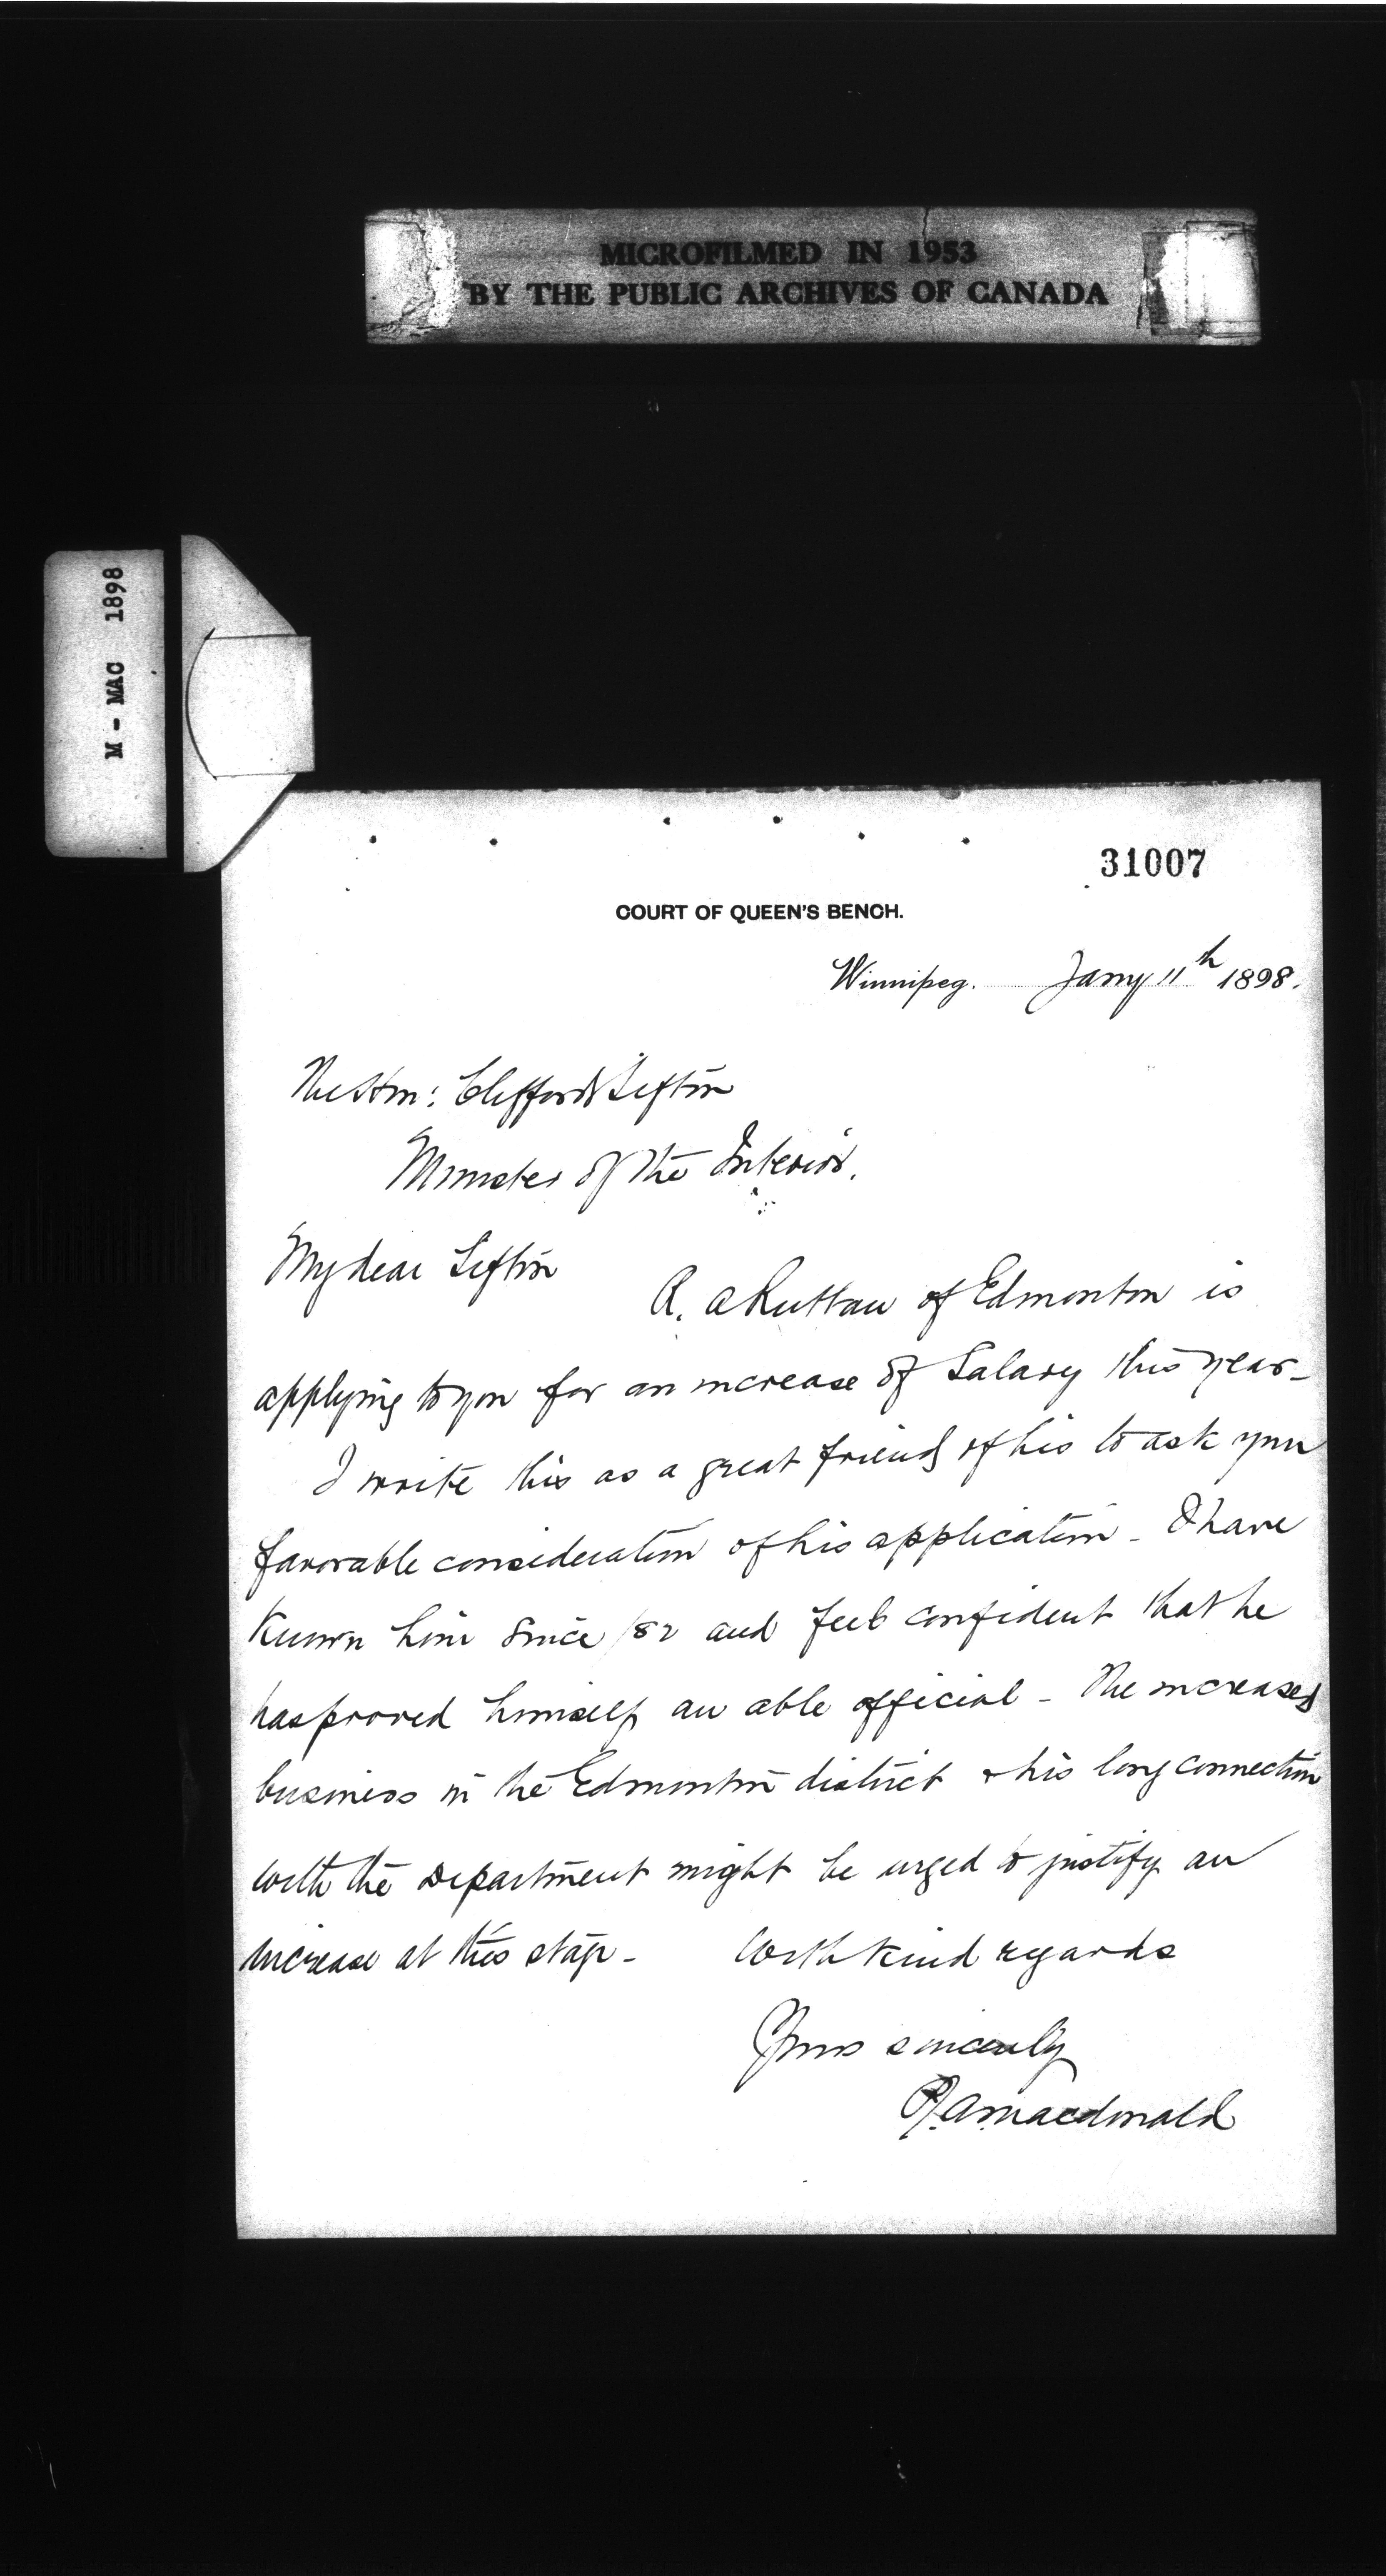 MICROFILMED IN 1953
BY THE PUBLIC ARCHIVES OF CANADA
M - MAC 1898
31007
COURT OF QUEEN'S BENCH.
Winnipeg. Jany 11th 1898.
The Hon: Clifford Sifton
Minister of the Interior.
My dear Sifton
R. A Ruttan of Edmonton is
applying to you for an increase of Salary this year -
I write this as a great friend of his to ask your
favorable consideration of his application - I have
known him since /82 and feel confident that he
has proved himself an able official - The increased
business in the Edmonton district & his long connection
with the Department might be urged to justify an
increase at this stage - With kind regards
Yours sincerely
A. Macdonald